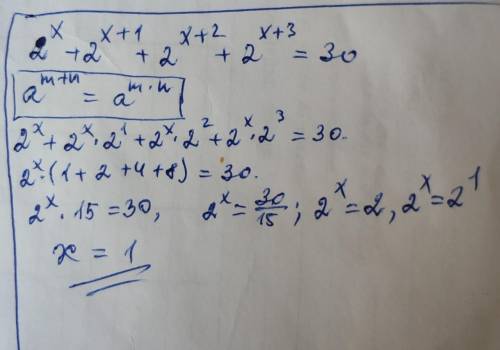 2^x + 2^{x+1} + 2^{x+2} + 2^{x+3} = 30
a^{m+n} = a^{m·n}
2^x + 2^x·2^1 + 2^x·2^2 + 2^x·2^3 = 30.
2^x·(1 + 2 + 4 + 8) = 30.
2^x · 15 = 30, 2^x = 30/15; 2^x = 2, 2^x = 2^1
x = 1